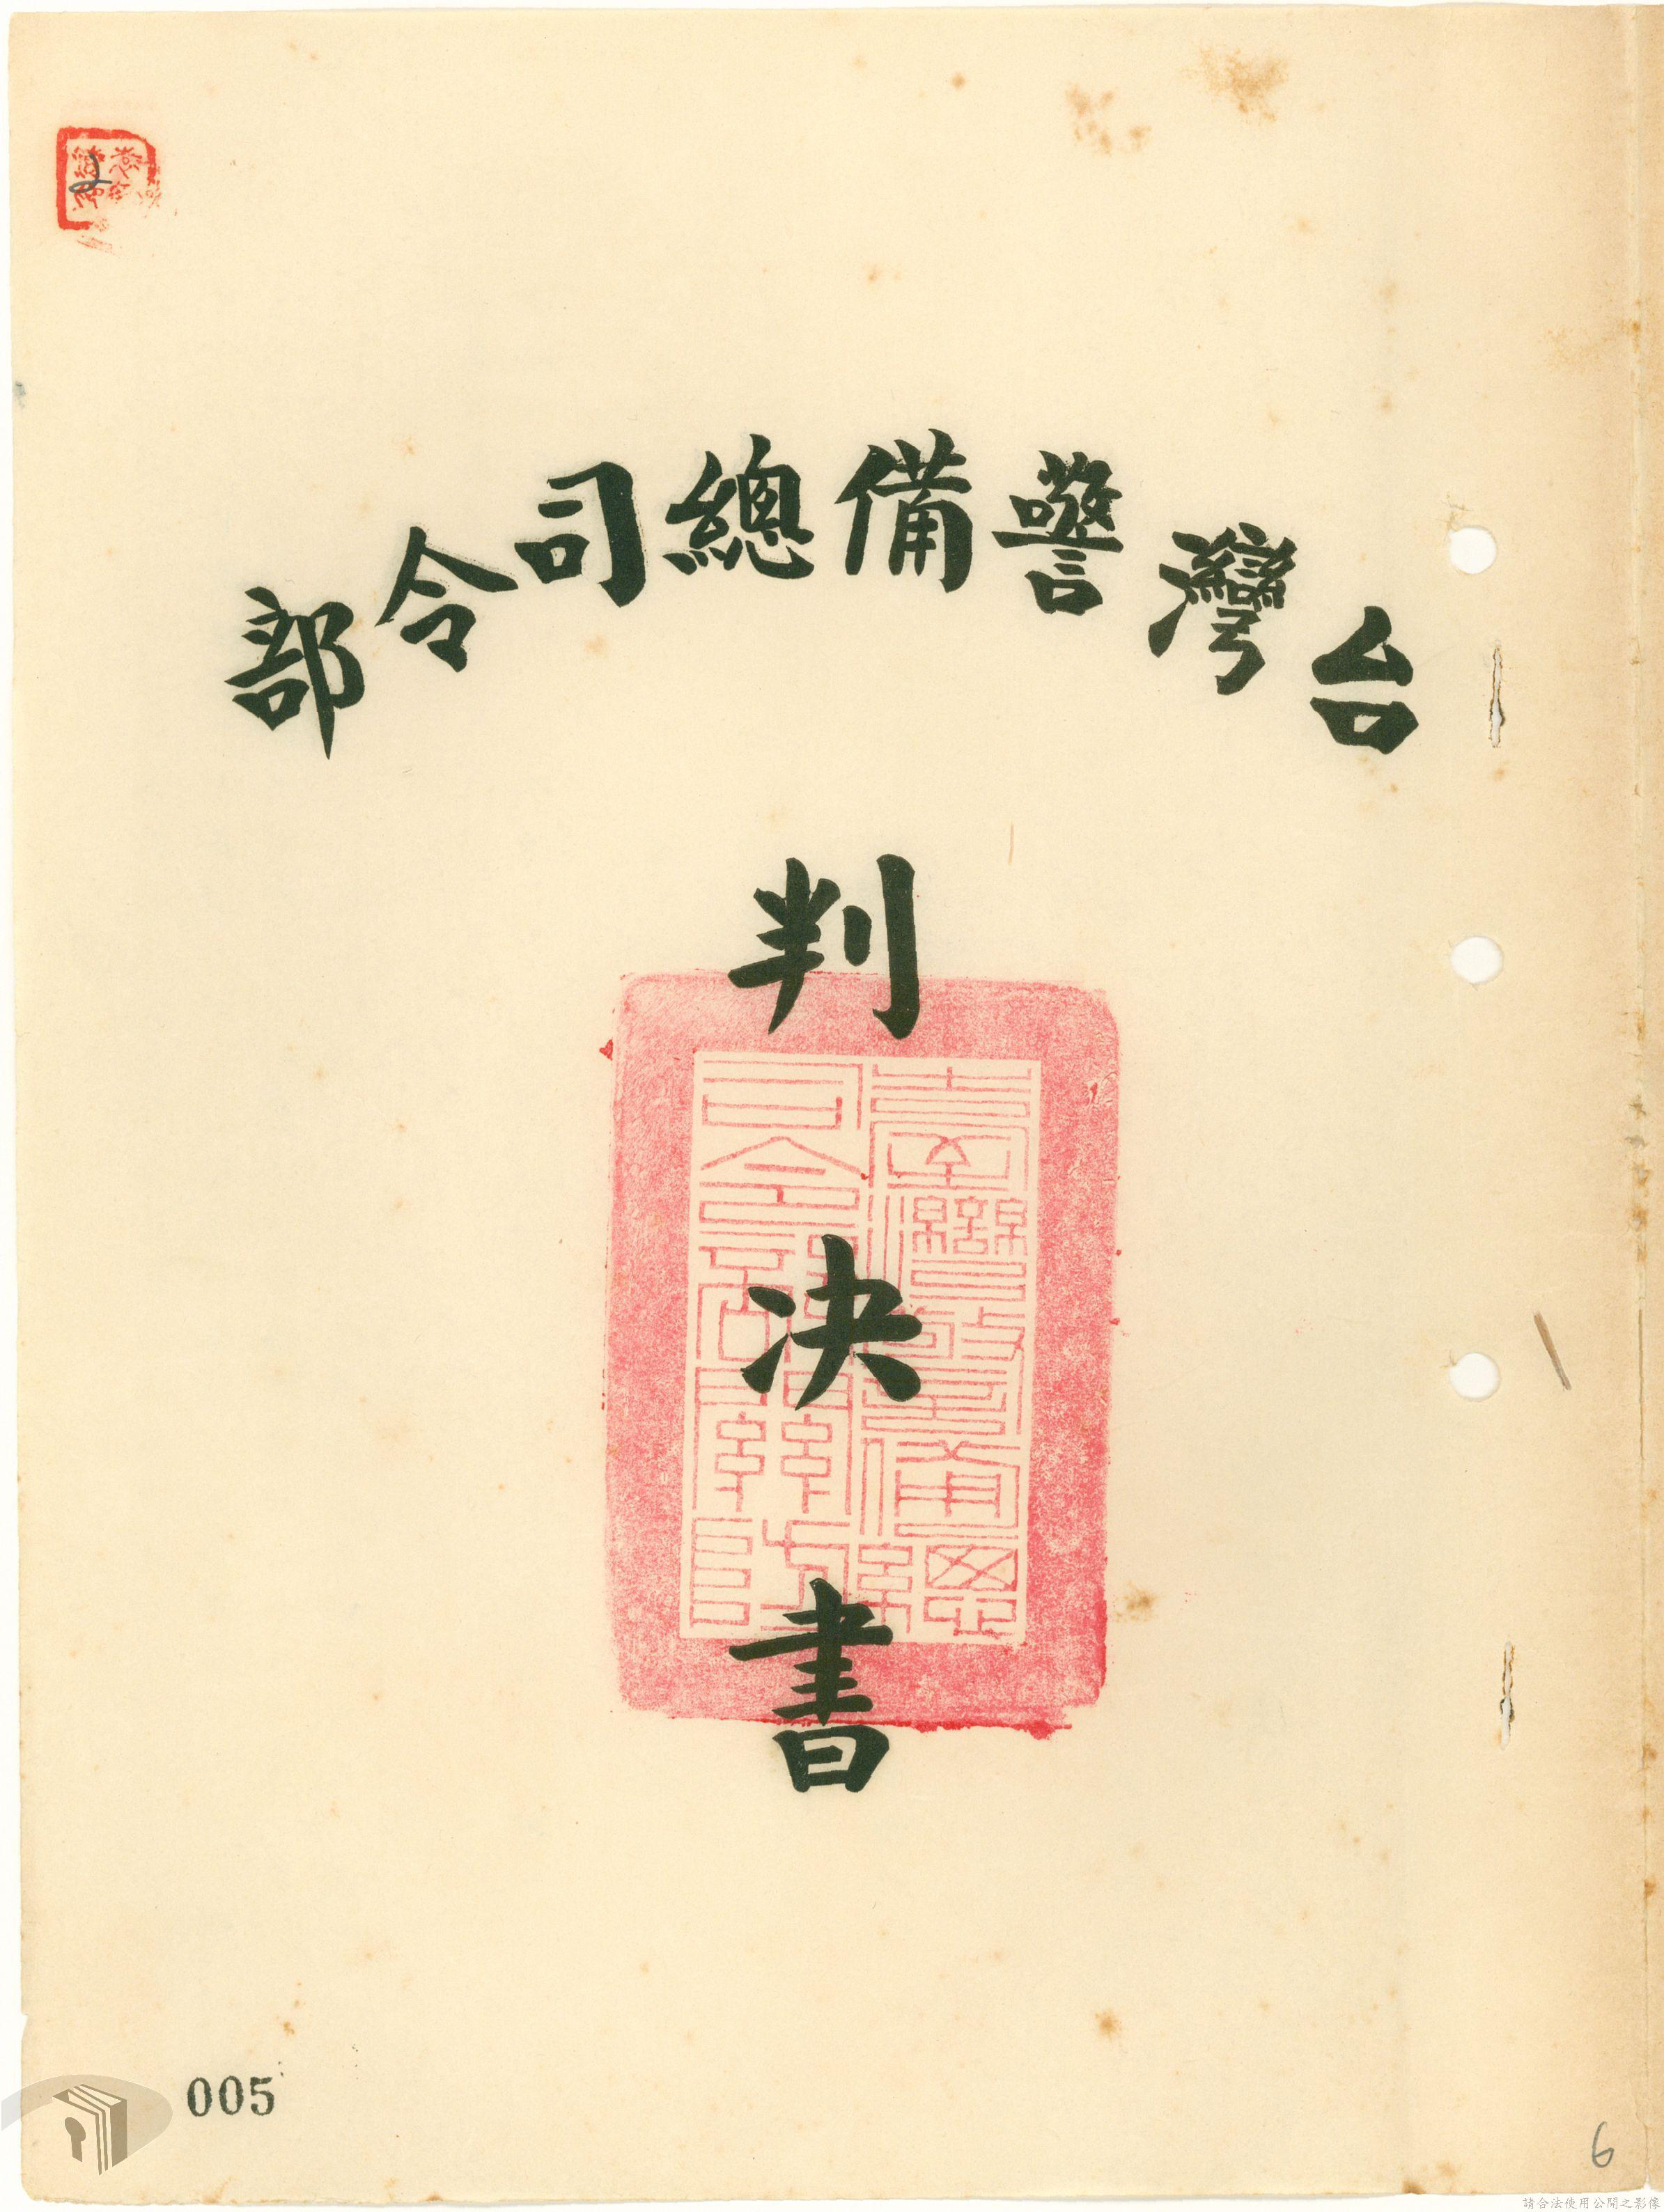 台灣警備總司令部
判
決
書
2
005
6
請合法使用公開之影像